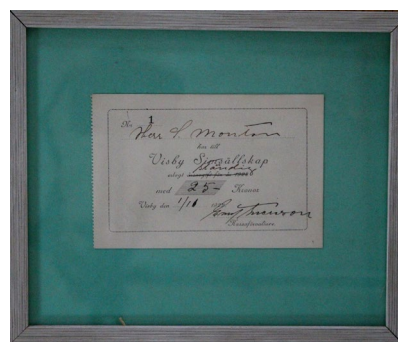 No 1
Herr S. Monton
har till
Visby Sjösällskap
erlagt ständig
med 25- Kronor
Visby den 1/11
Kassaförvaltare